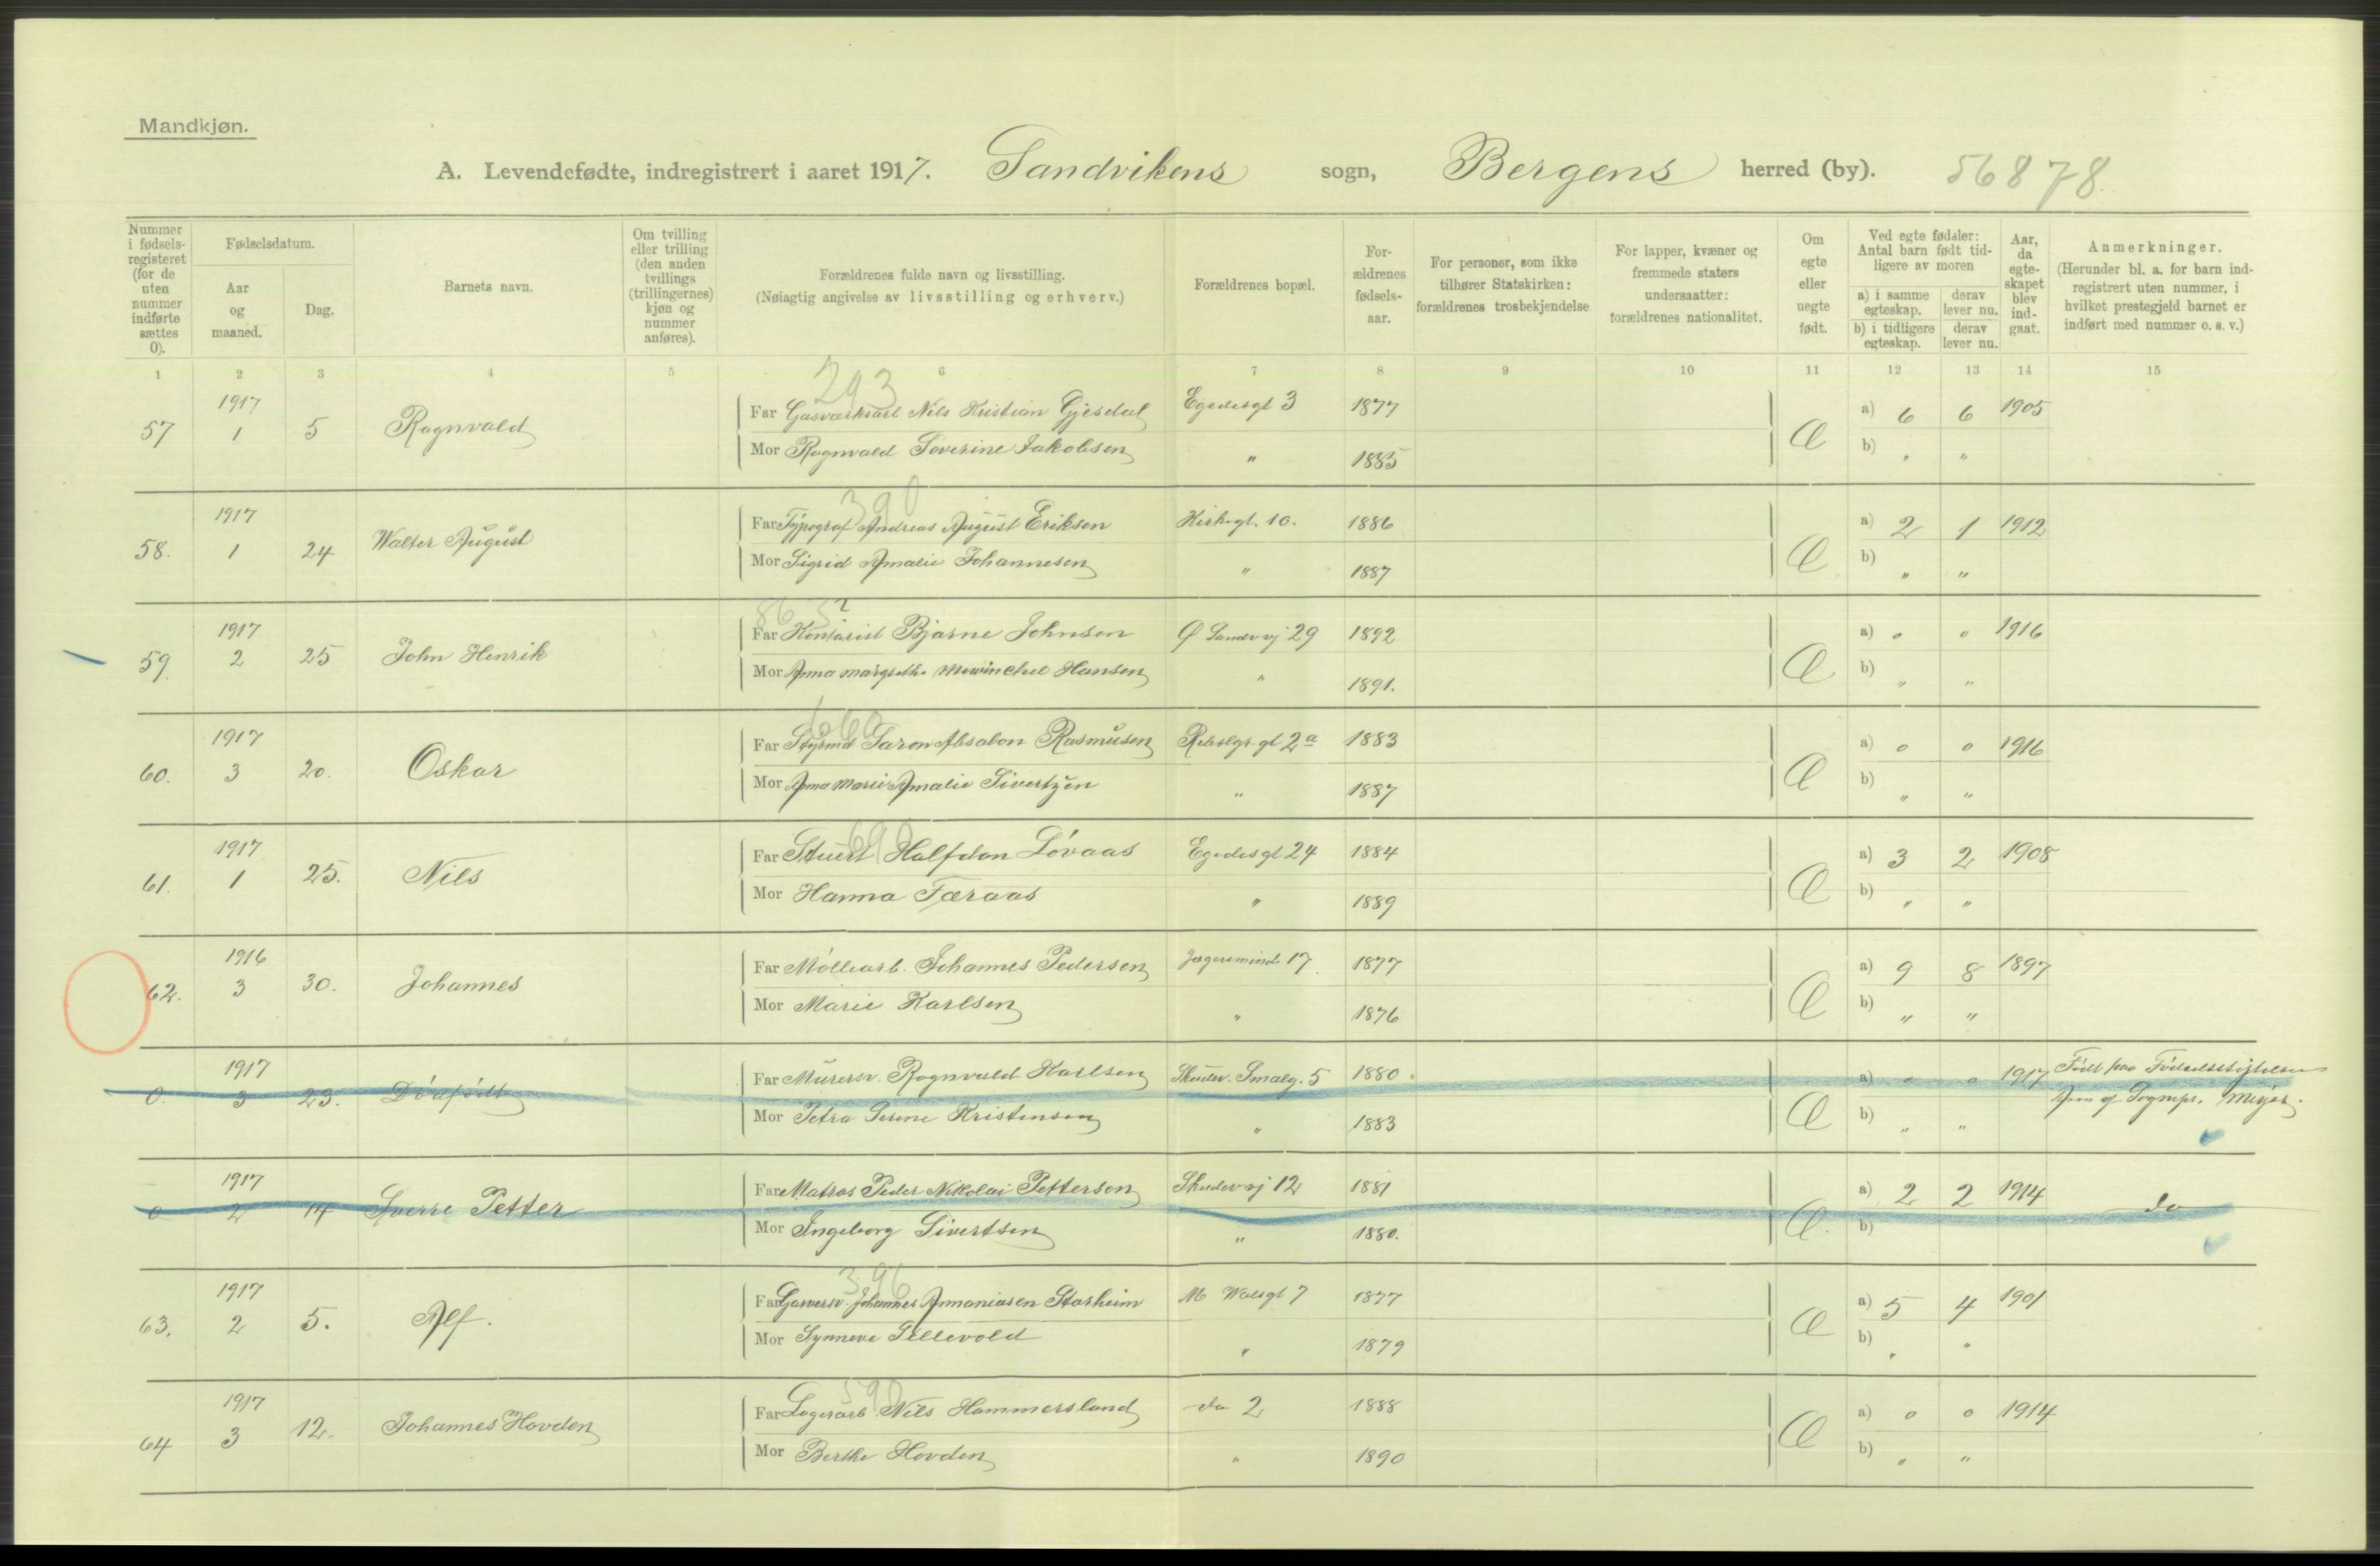 Mandkjøn.
A. Levendefødte, indregistrert i aaret 1917. Sandvikens sogn, Bergens herred (by). 56878
Nummer i fødsels-registeret (for de uten nummer indførte sættes 0).
Fødselsdatum.
Aar og maaned.
Dag.
Barnets navn.
Om tvilling eller trilling (den anden tvillings (trillingernes) kjøn og nummer anføres).
Forældrenes fulde navn og livsstilling.
(Nøiagtig angivelse av livsstilling og erhverv.)
Forældrenes bopæl.
For-ældrenes fødsels-aar.
For personer, som ikke tilhører Statskirken: forældrenes trosbekjendelse
For lapper, kvæner og fremmede staters undersaatter: forældrenes nationalitet.
Om egte eller uegte født.
Ved egte fødsler: Antal barn født tid-ligere av moren
a) i samme egteskap. derav lever nu.
b) i tidligere egteskap. derav lever nu.
Aar, da egte-skapet blev ind-gaat.
Anmerkninger.
(Herunder bl. a. for barn ind-registrert uten nummer, i hvilket prestegjeld barnet er indført med nummer o. s. v.)
1 2 3 4 5 6 7 8 9 10 11 12 13 14 15
293
57 1917 1 5 Ragnvald Far Gasværksarb Nils Kristian Gjesdal Egedesgt 3 1877 Æ a) 6 6 1905
Mor Ragnvald Severine Jakobsen " 1885 b) " "
390
58. 1917 1 24 Walter August Far Typograf Andreas August Eriksen Kirkegt. 10. 1886 Æ a) 2 1 1912
Mor Sigrid Amalie Johannesen " 1887 b) " "
59. 1917 2 25 John Henrik Far Kontorist Bjarne Johnsen Ø Sandvvj 29 1892 Æ a) 0 0 1916
Mor Anna Margrethe Hansen " 1891. b) " "
660
60. 1917 3 20. Oskar Far Styrmd Absalon Rasmusen 2a 1883 Æ a) 0 0 1916
Mor Anna Marie Amalie Sivertzen " 1887 b) " "
690
61. 1917 1 25. Nils Far Stuert Halfdan Løvaas Egedesgt 24 1884 Æ a) 3 2 1908
Mor Hanna Færaas " 1889 b) " "
62. 1916 3 30. Johannes Far Møllearb. Johannes Pedersen Jægersminde 17 1877 Æ a) 9 8 1897
Mor Marie Karlsen " 1876 b) " "
0. 1917 3 23. Dødfødt Far Murersv. Ragnvald Karlsen Skudev. Smalg. 5 1880 Æ a) 0 0 1917 Født paa Fødselsstiftelsen
Mor Petra Serine Kristensen " 1883 b) " " Anm af Sognepr. Meyer.
0 1917 2 14 Sverre Petter Far Matros Peder Nikolai Pettersen Skudevvj 12 1881 Æ. a) 2 2 1914 do
Mor Ingeborg Sivertsen " 1880. b)
396
63. 1917 2 5. Alf. Far Garversv. Johannes Annaniasen Starheim M Wolsgt 7 1877 Æ a) 5 4 1901
Mor Synneve Sellevold " 1879 b) " "
590
64 1917 3 12. Johannes Hovden Far Lagerarb Nils Hammersland do 2 1888 Æ a) 0 0 1914
Mor Berthe Hovden " 1890 b) " "